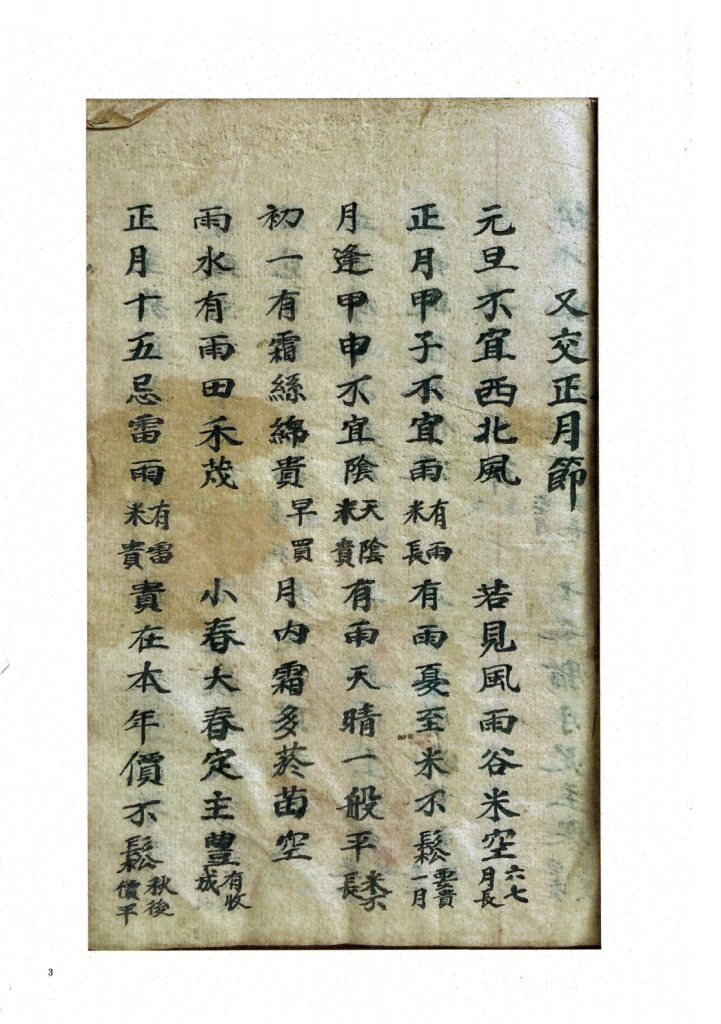 又交正月節
元旦不宜西北風 若見風雨谷米空 六七月長
正月甲子不宜雨 有雨米長 有雨夏至米不鬆 要貴一月
月逢甲申不宜陰 天陰米貴 有雨天晴一般平 米不長
初一有霜絲綿貴 早買 月內霜多菸苗空
雨水有雨田禾茂 小春大春定主豊 有收成
正月十五忌雷雨 有雷米貴 貴在本年價不鬆 秋後價平
3